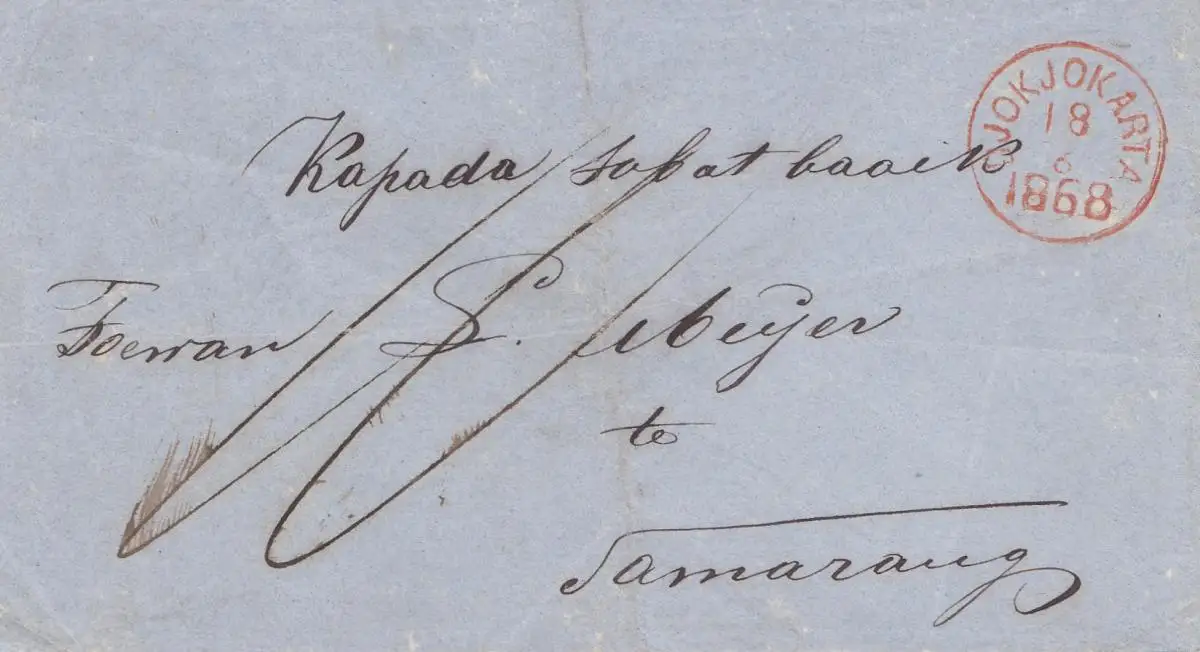 DJOKJOKARTA
18
6
1868
Kapada sobat baaik
Toewan L. Meijer
te
Samarang